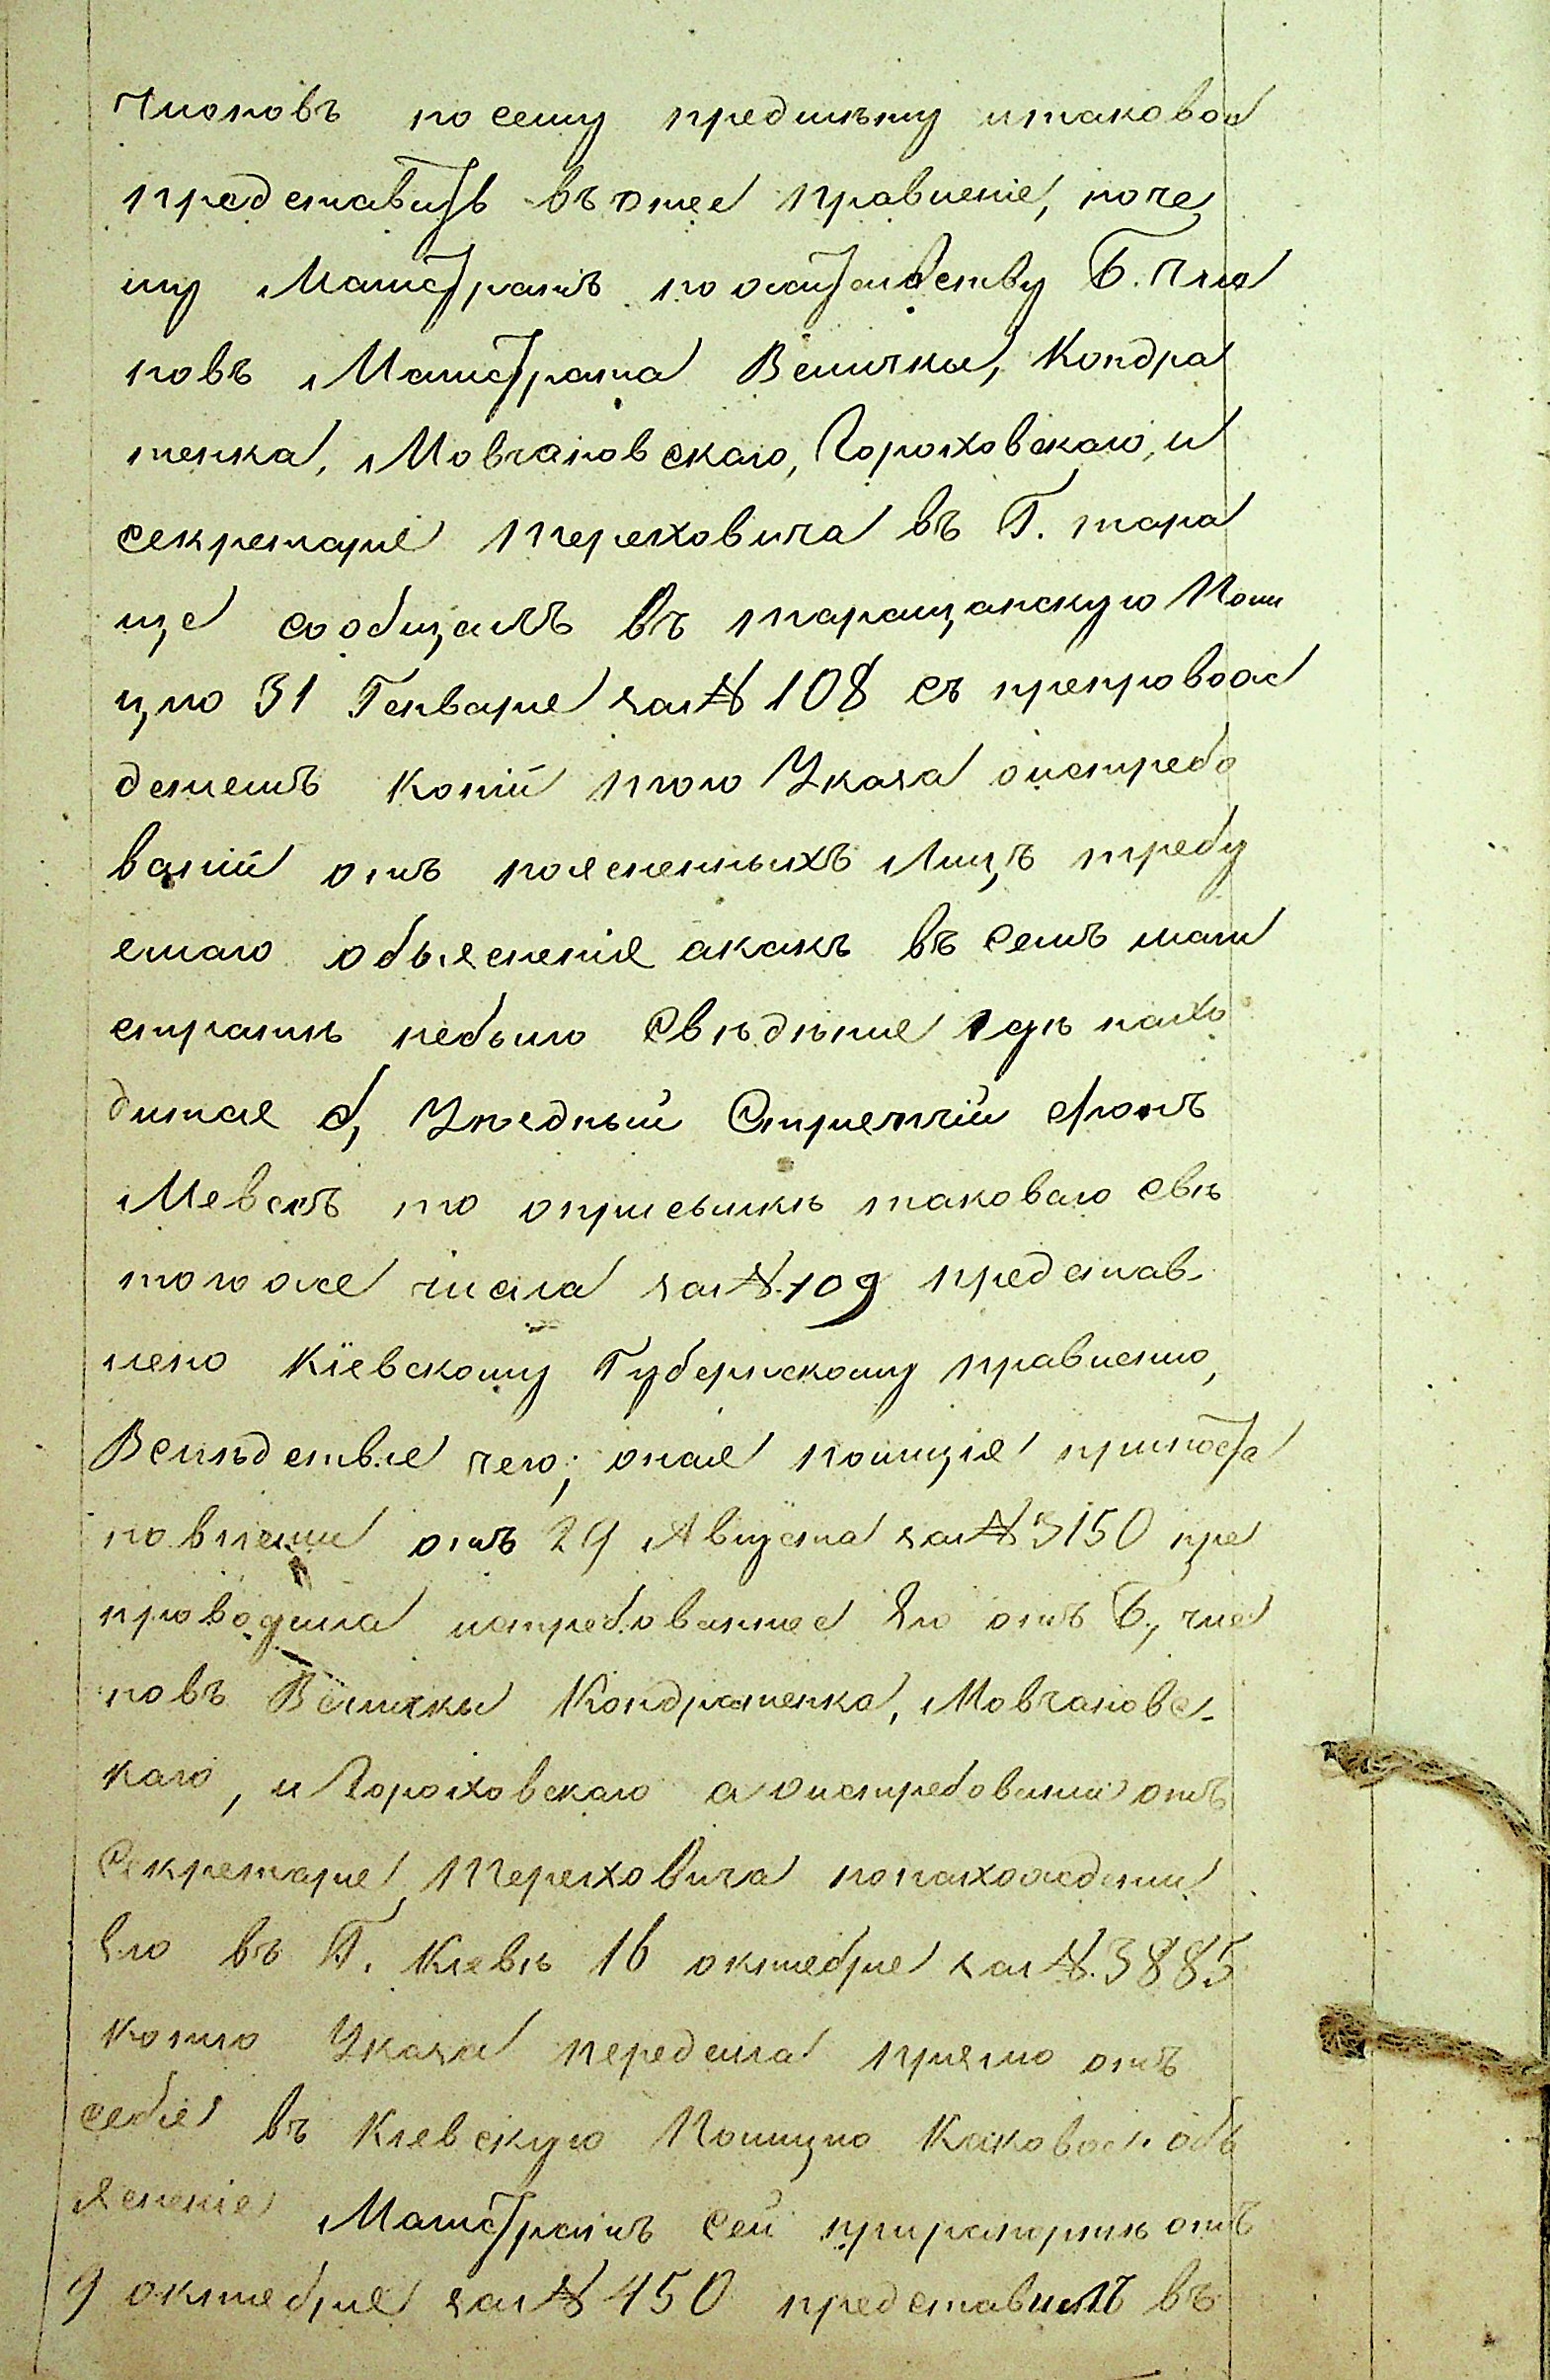 членовъ по сему предмѣту итаковое
представить въ онее правленіе, поче
му Магистратъ по жительству Б. Чле
новъ Магистрата Велички, Кондра
тенка, Мовчановскаго, Гороховскаго, и
секретаря Тереховича въ Г. тара
ще сообщалъ въ таращанскую Поли
цию 31 Генваря за № 108 съ препровож
дениемъ копіи того Указа оистребо
ваніи отъ поясненныхъ Лицъ требу
емаго объясненія акакъ въ семъ маги
стратѣ небыло Свѣдѣние гдѣ нахо
дится б, Уѣздный Стряпчій фонъ
Мевесъ то оприсылкѣ таковаго свѣ
тогоже числа за №. 109 представ-
лено Кіевскому Губернскому правлению,
Вслѣдствие чего; оная полиція припоста
новлении отъ 29 Августа за № 3150 пре
проводила истребованное Ею отъ Б, чле
новъ Велички Кондратенка, Мовчановс-
каго, и Гороховскаго а оистребовании отъ
Секретаря Тереховича понахождении
Его въ Г. Киевѣ 16 октября за №. 3885
копию Указа передала прямо отъ
себя въ Киевскую Полицию Каковое объ
ясненіе Магистратъ сей прирапортѣ отъ
9 октября за № 450 представилъ въ